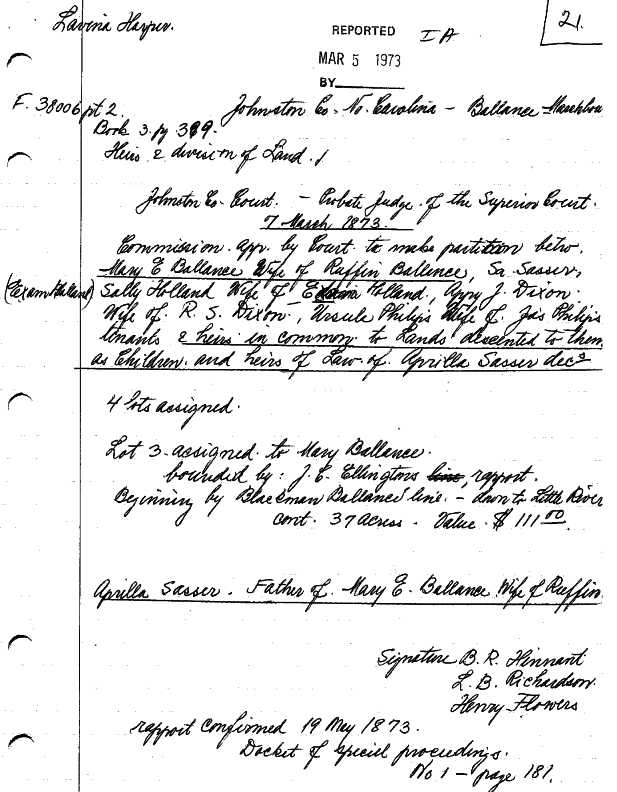 Lavina Harper.
REPORTED IA
21.
MAR 5 1973
BY
F. 38006 pt 2.
Johnston Co. No. Carolina - Ballance -
Book 3. pg 389.
Heirs & division of Land.
Johnston Co. Court. - Probate Judge of the Superior Court.
7 March 1873.
Commission. app. by Court to make partition betw.
Mary E Ballance Wife of Ruffin Ballence, Sr Sasser,
(Exam Holland) Sally Holland Wife of Holland, Appy J. Dixon.
Wife of R. S. Dixon, Ursula Philips Wife of Jas Philips
tenants & heirs in common to Lands descented to them
as Children and heirs of Law of Aprilla Sasser decd
4 lots assigned.
Lot 3 assigned to Mary Ballance.
bounded by: J. C. Ellingtons line, rapport.
Beginning by Blackman Ballance line. - down to Little River
cont. 37 acres. Value $ 111 00.
Aprilla Sasser. Father of Mary E. Ballance Wife of Ruffin.
Signature B. R. Hinnant
L. B. Richardson.
Henry Flowers
rapport confirmed 19 May 1873.
Docket of special proceedings.
No 1 - page 181.